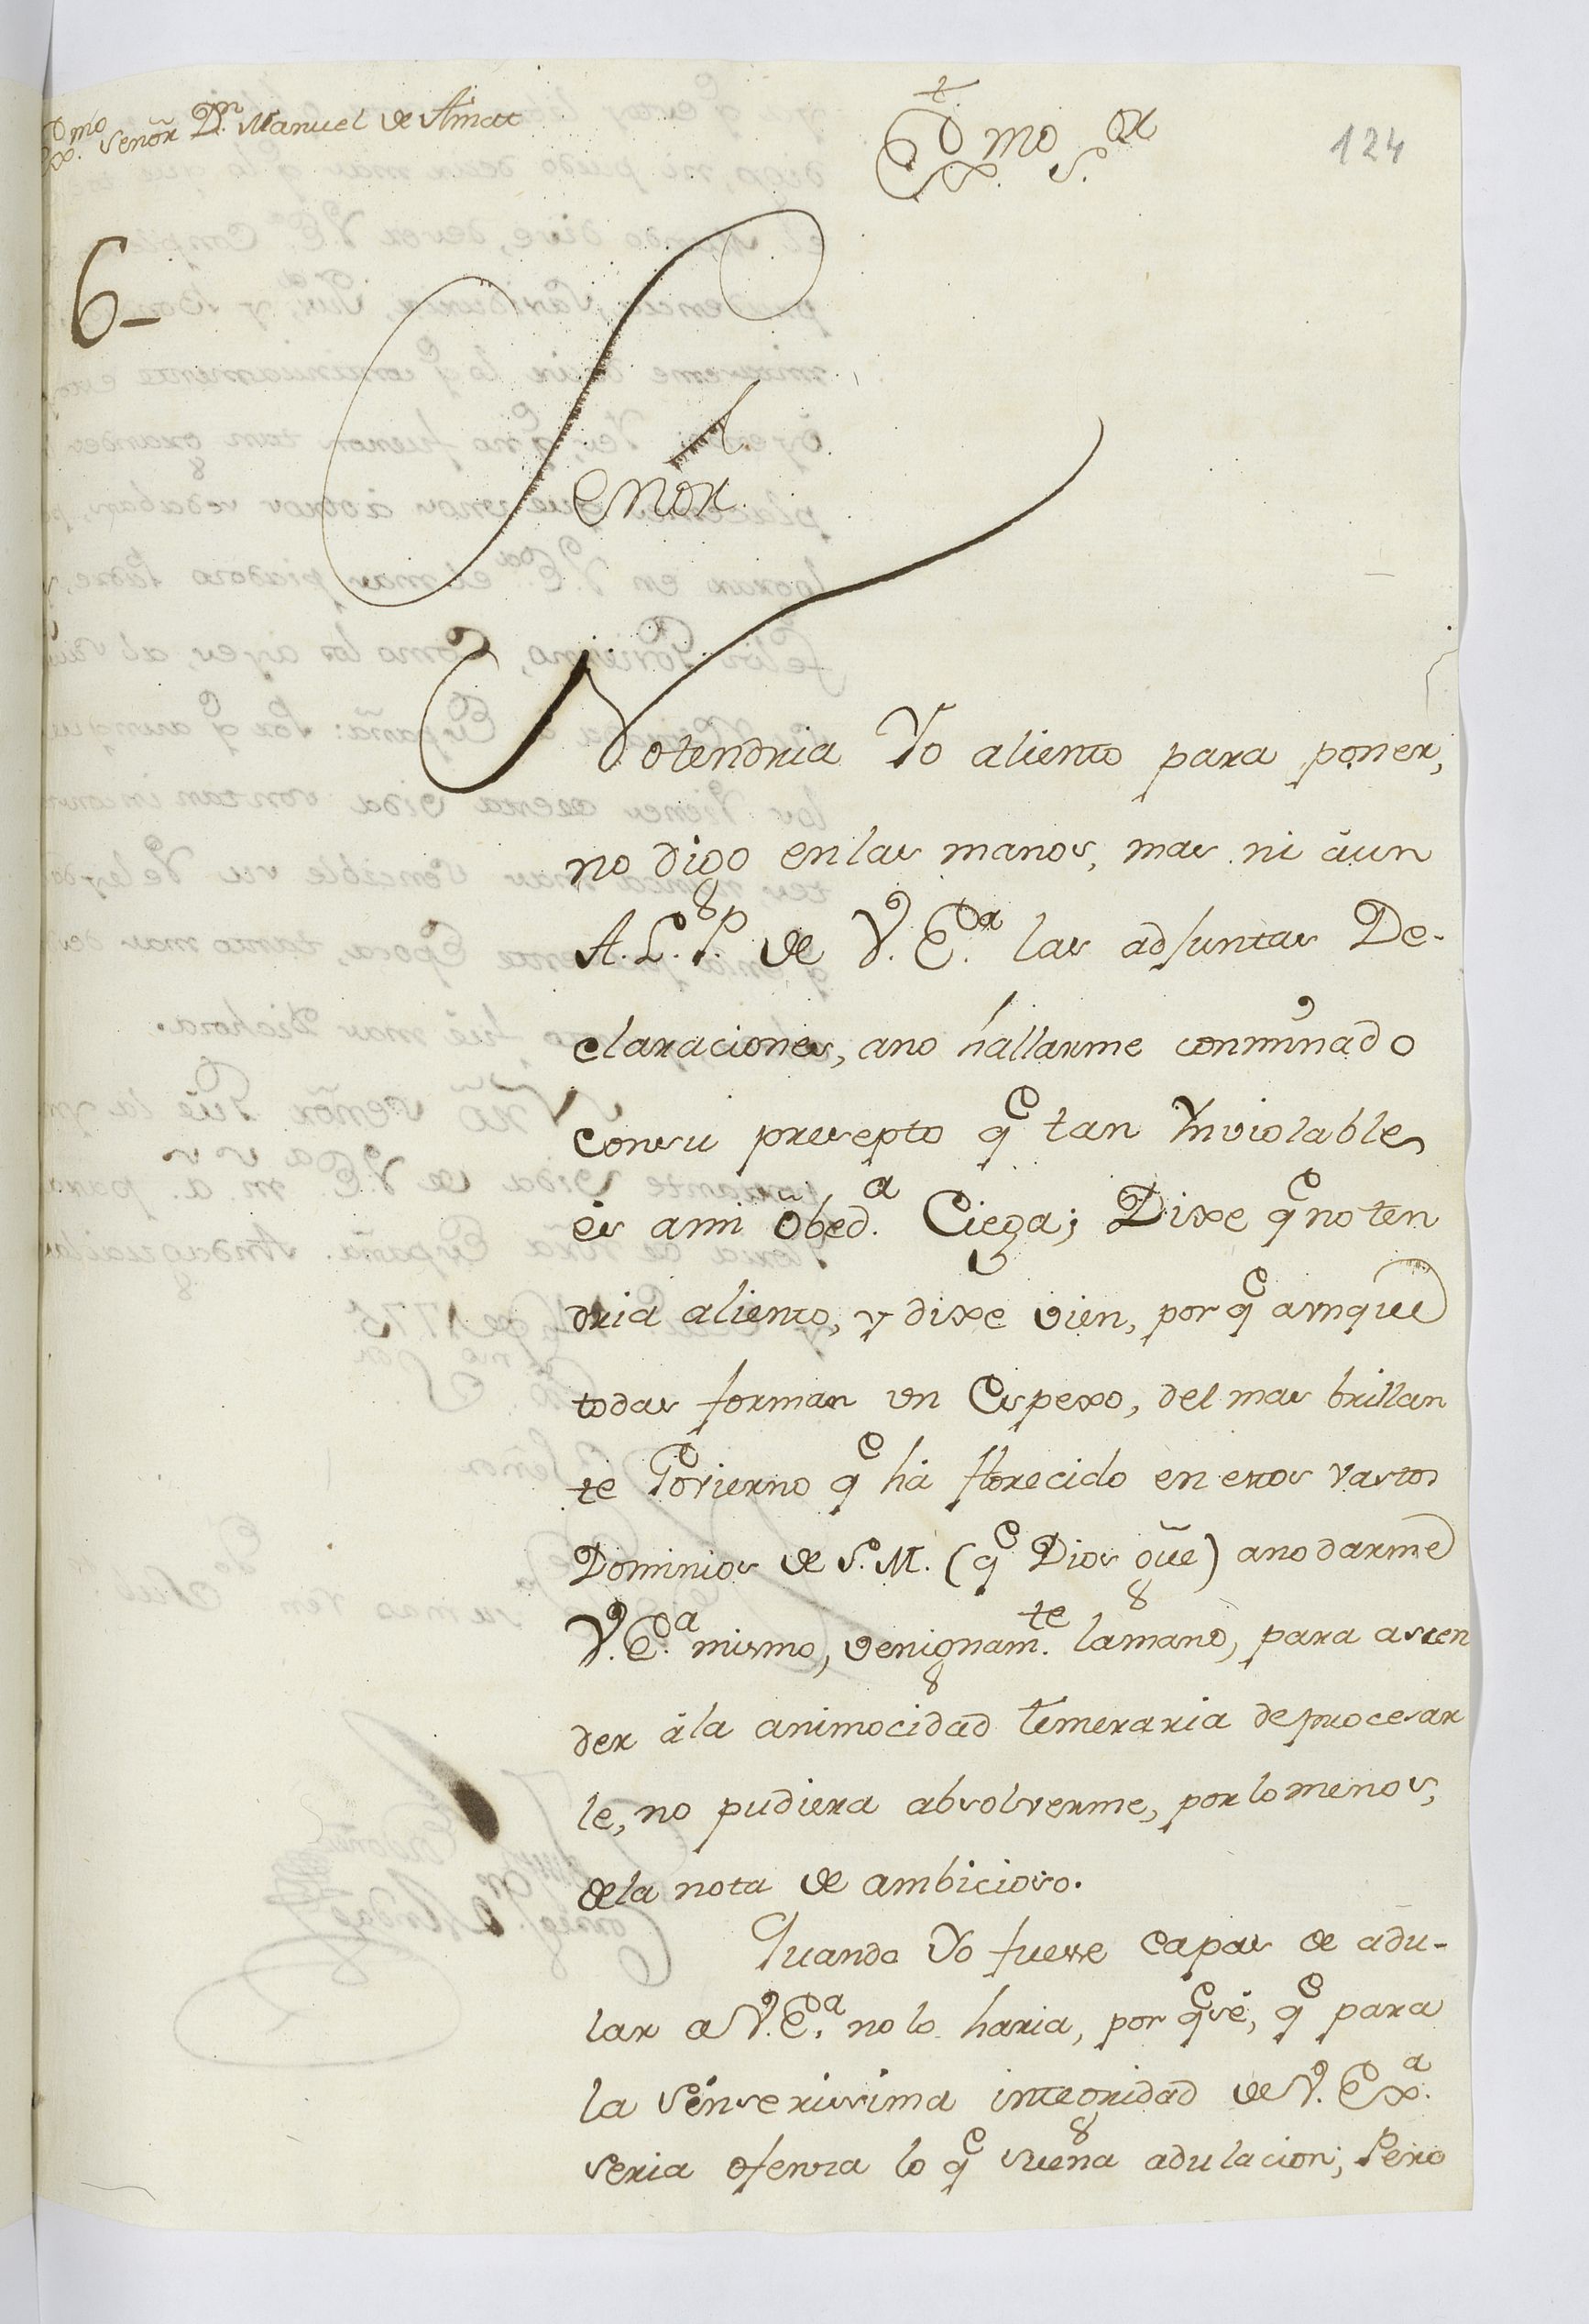 Exmo. Señor Dn. Manuel de Amat
124
Exmo. S.or
6-
Señor
No tendria Yo aliento para poner,
no digo en las manos, mas ni aun
A. L. P. de V. E.a las adjuntas De-
claraciones, ano hallarme conminado
consu presepto qe tan Ynviolable
és ami obed.a Ciega; Dixe qe no ten
dria aliento, y dixe vien, por qe aunque
todas forman un Espexo, del mas brillan
te Govierno qe há florecido en estos vastos
Dominios de S. M. (qe Dios gue) ano darme
V. E.a mismo, venignam.te la mano, para ascen
der ála animocidad temeraria de procesar
le, no pudiera absolverme, por lo menos,
dela nota de ambicioso.
Quando Yo fuesse capas de adu-
lar a V. E.a no lo haria, por qe sé, qe para
la sénserissima integridad de V. Ex.a
seria ofensa lo qe suena adulacion; Pero